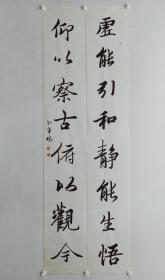 虚能引和静能生悟
仰以察古俯以观今